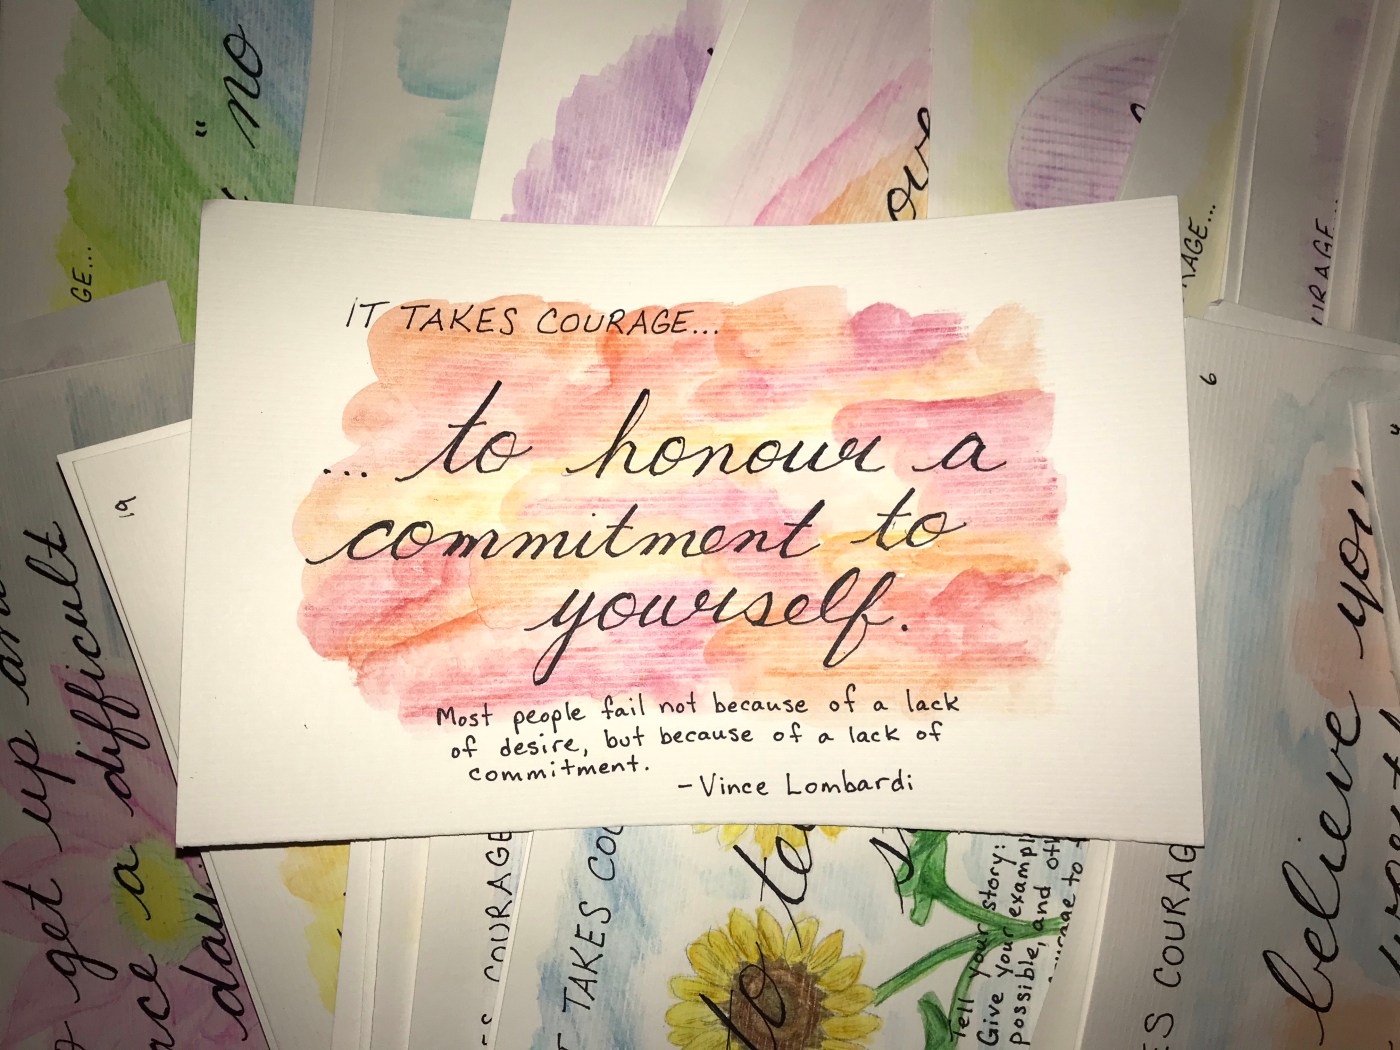 IT TAKES COURAGE...
... to honour a
commitment to
yourself.
Most people fail not because of a lack
of desire, but because of a lack of
commitment.
-Vince Lombardi
"no
GE...
RAGE...
URAGE...
6
19
get up and
a difficult
day.
COURAGE
TAKES COU
to te
Tell your story:
Give your exampl
possible, and oth
courage to t
ES COURAG
believe you